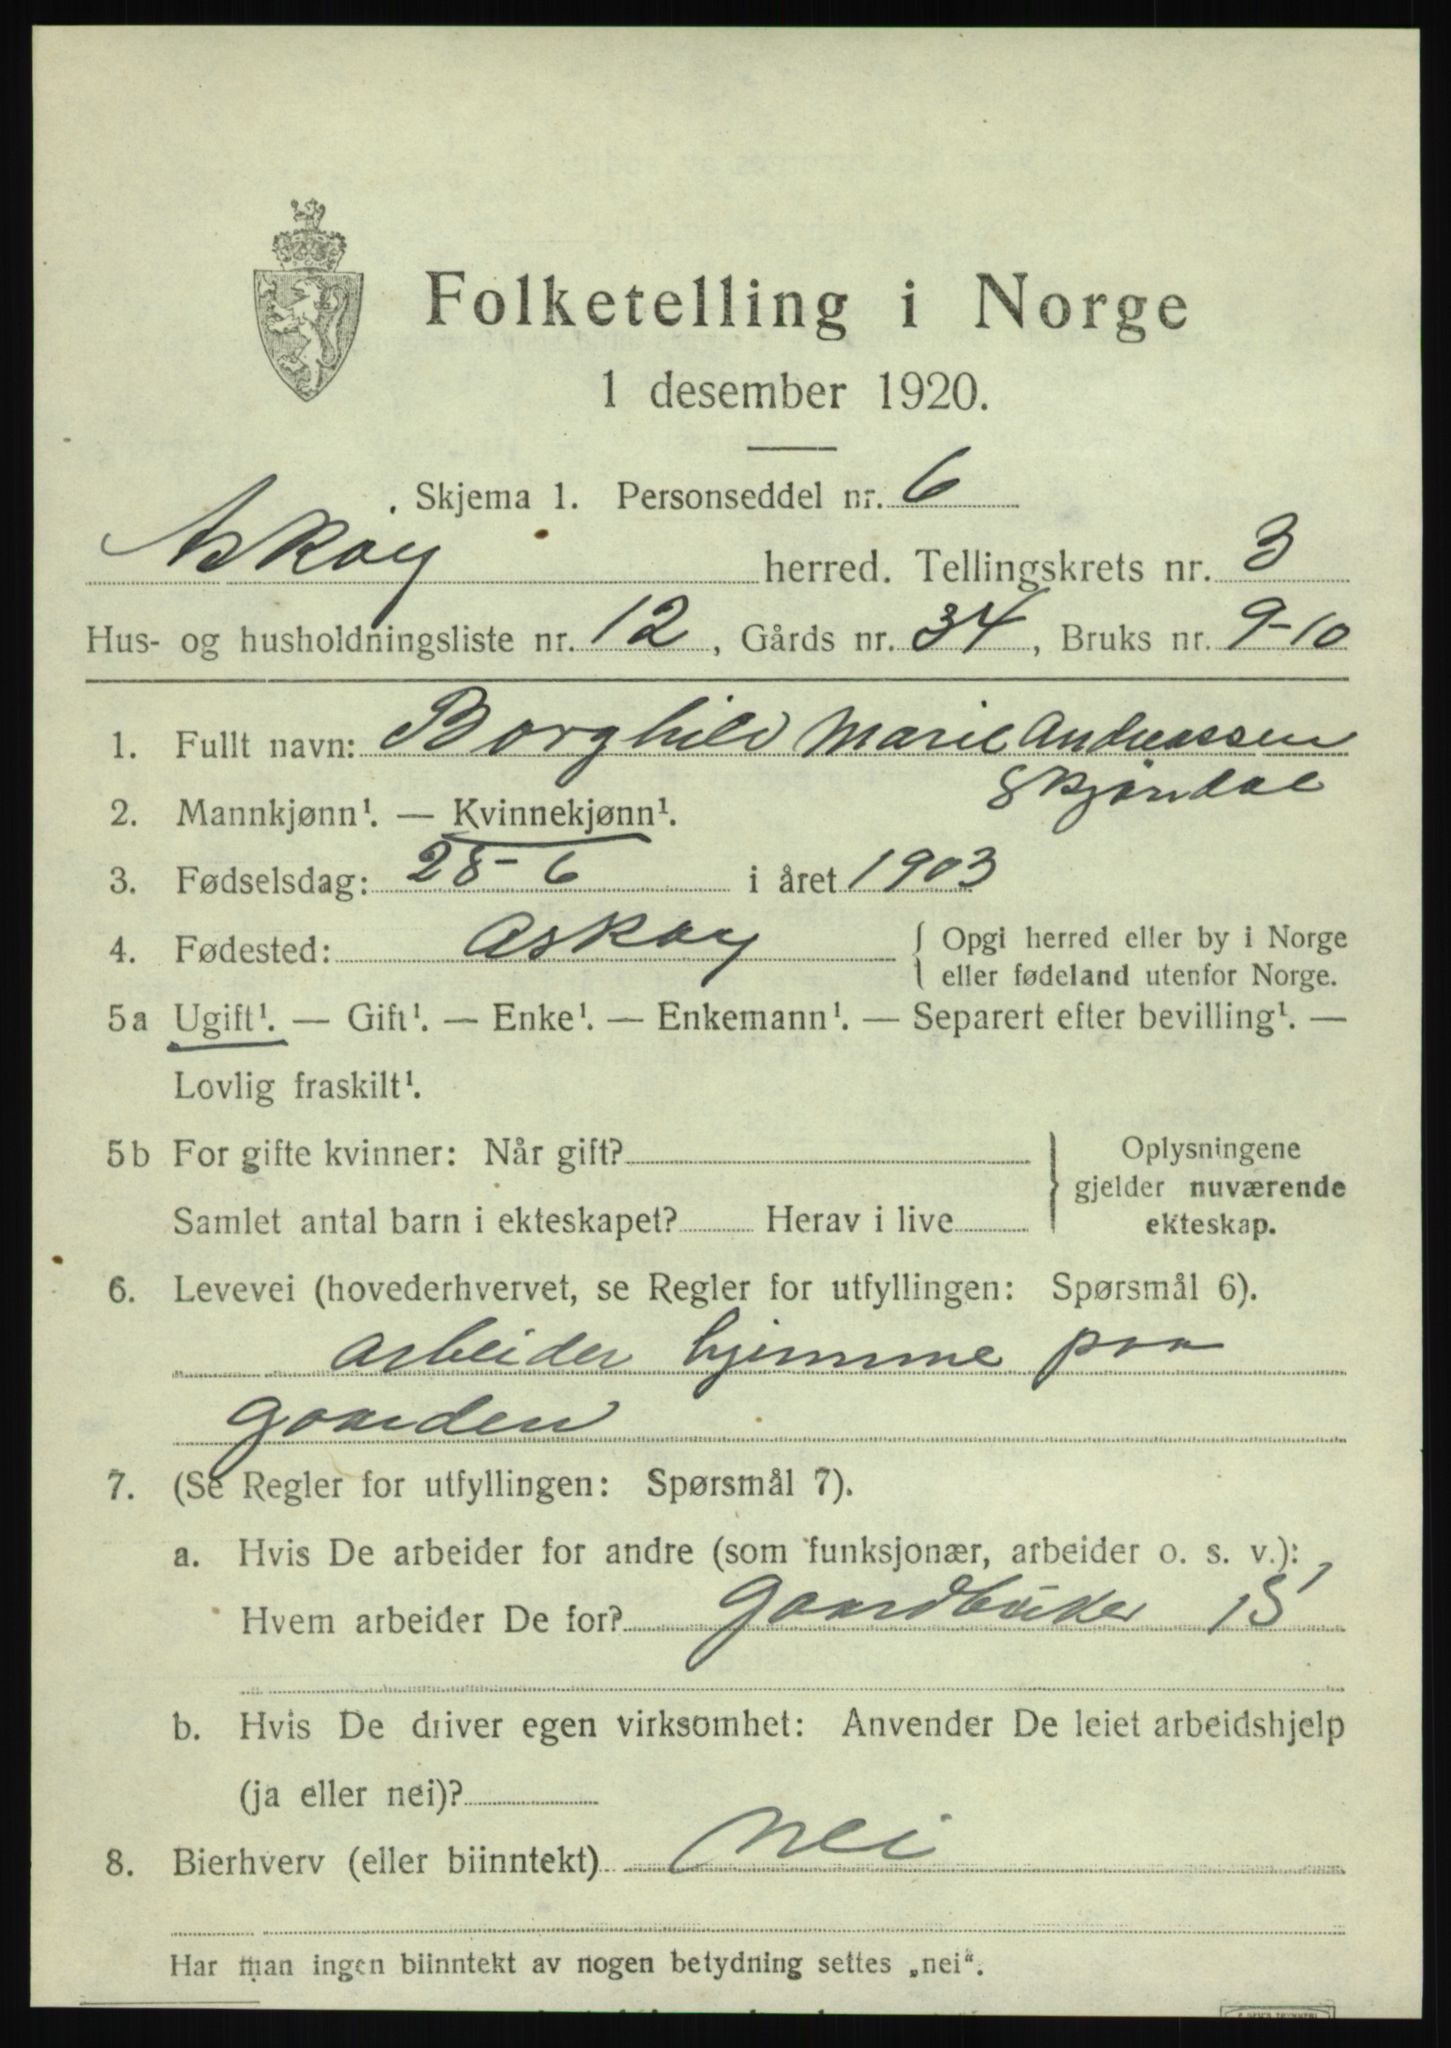 Folketelling i Norge
1 desember 1920.
Skjema 1. Personseddel nr. 6
Askøy herred. Tellingskrets nr. 3
Hus- og husholdningsliste nr. 12, Gårds nr. 34, Bruks nr. 9-10
1. Fullt navn: Borghild Marie Andreassen
Skjøndal
2. Mannkjønn¹. — Kvinnekjønn¹.
3. Fødselsdag: 28-6 i året 1903
4. Fødested: Askøy { Opgi herred eller by i Norge
eller fødeland utenfor Norge.
5a Ugift¹. — Gift¹. — Enke¹. — Enkemann¹. — Separert efter bevilling¹. —
Lovlig fraskilt¹.
5b For gifte kvinner: Når gift? } Oplysningene
gjelder nuværende
Samlet antal barn i ekteskapet? Herav i live ekteskap.
6. Levevei (hovederhvervet, se Regler for utfyllingen: Spørsmål 6).
arbeider hjemme paa
gaarden
7. (Se Regler for utfyllingen: Spørsmål 7).
a. Hvis De arbeider for andre (som funksjonær, arbeider o. s. v.):
Hvem arbeider De for? Gaardbruker
b. Hvis De driver egen virksomhet: Anvender De leiet arbeidshjelp
(ja eller nei)?
8. Bierhverv (eller biinntekt) Nei
Har man ingen biinntekt av nogen betydning settes „nei“.